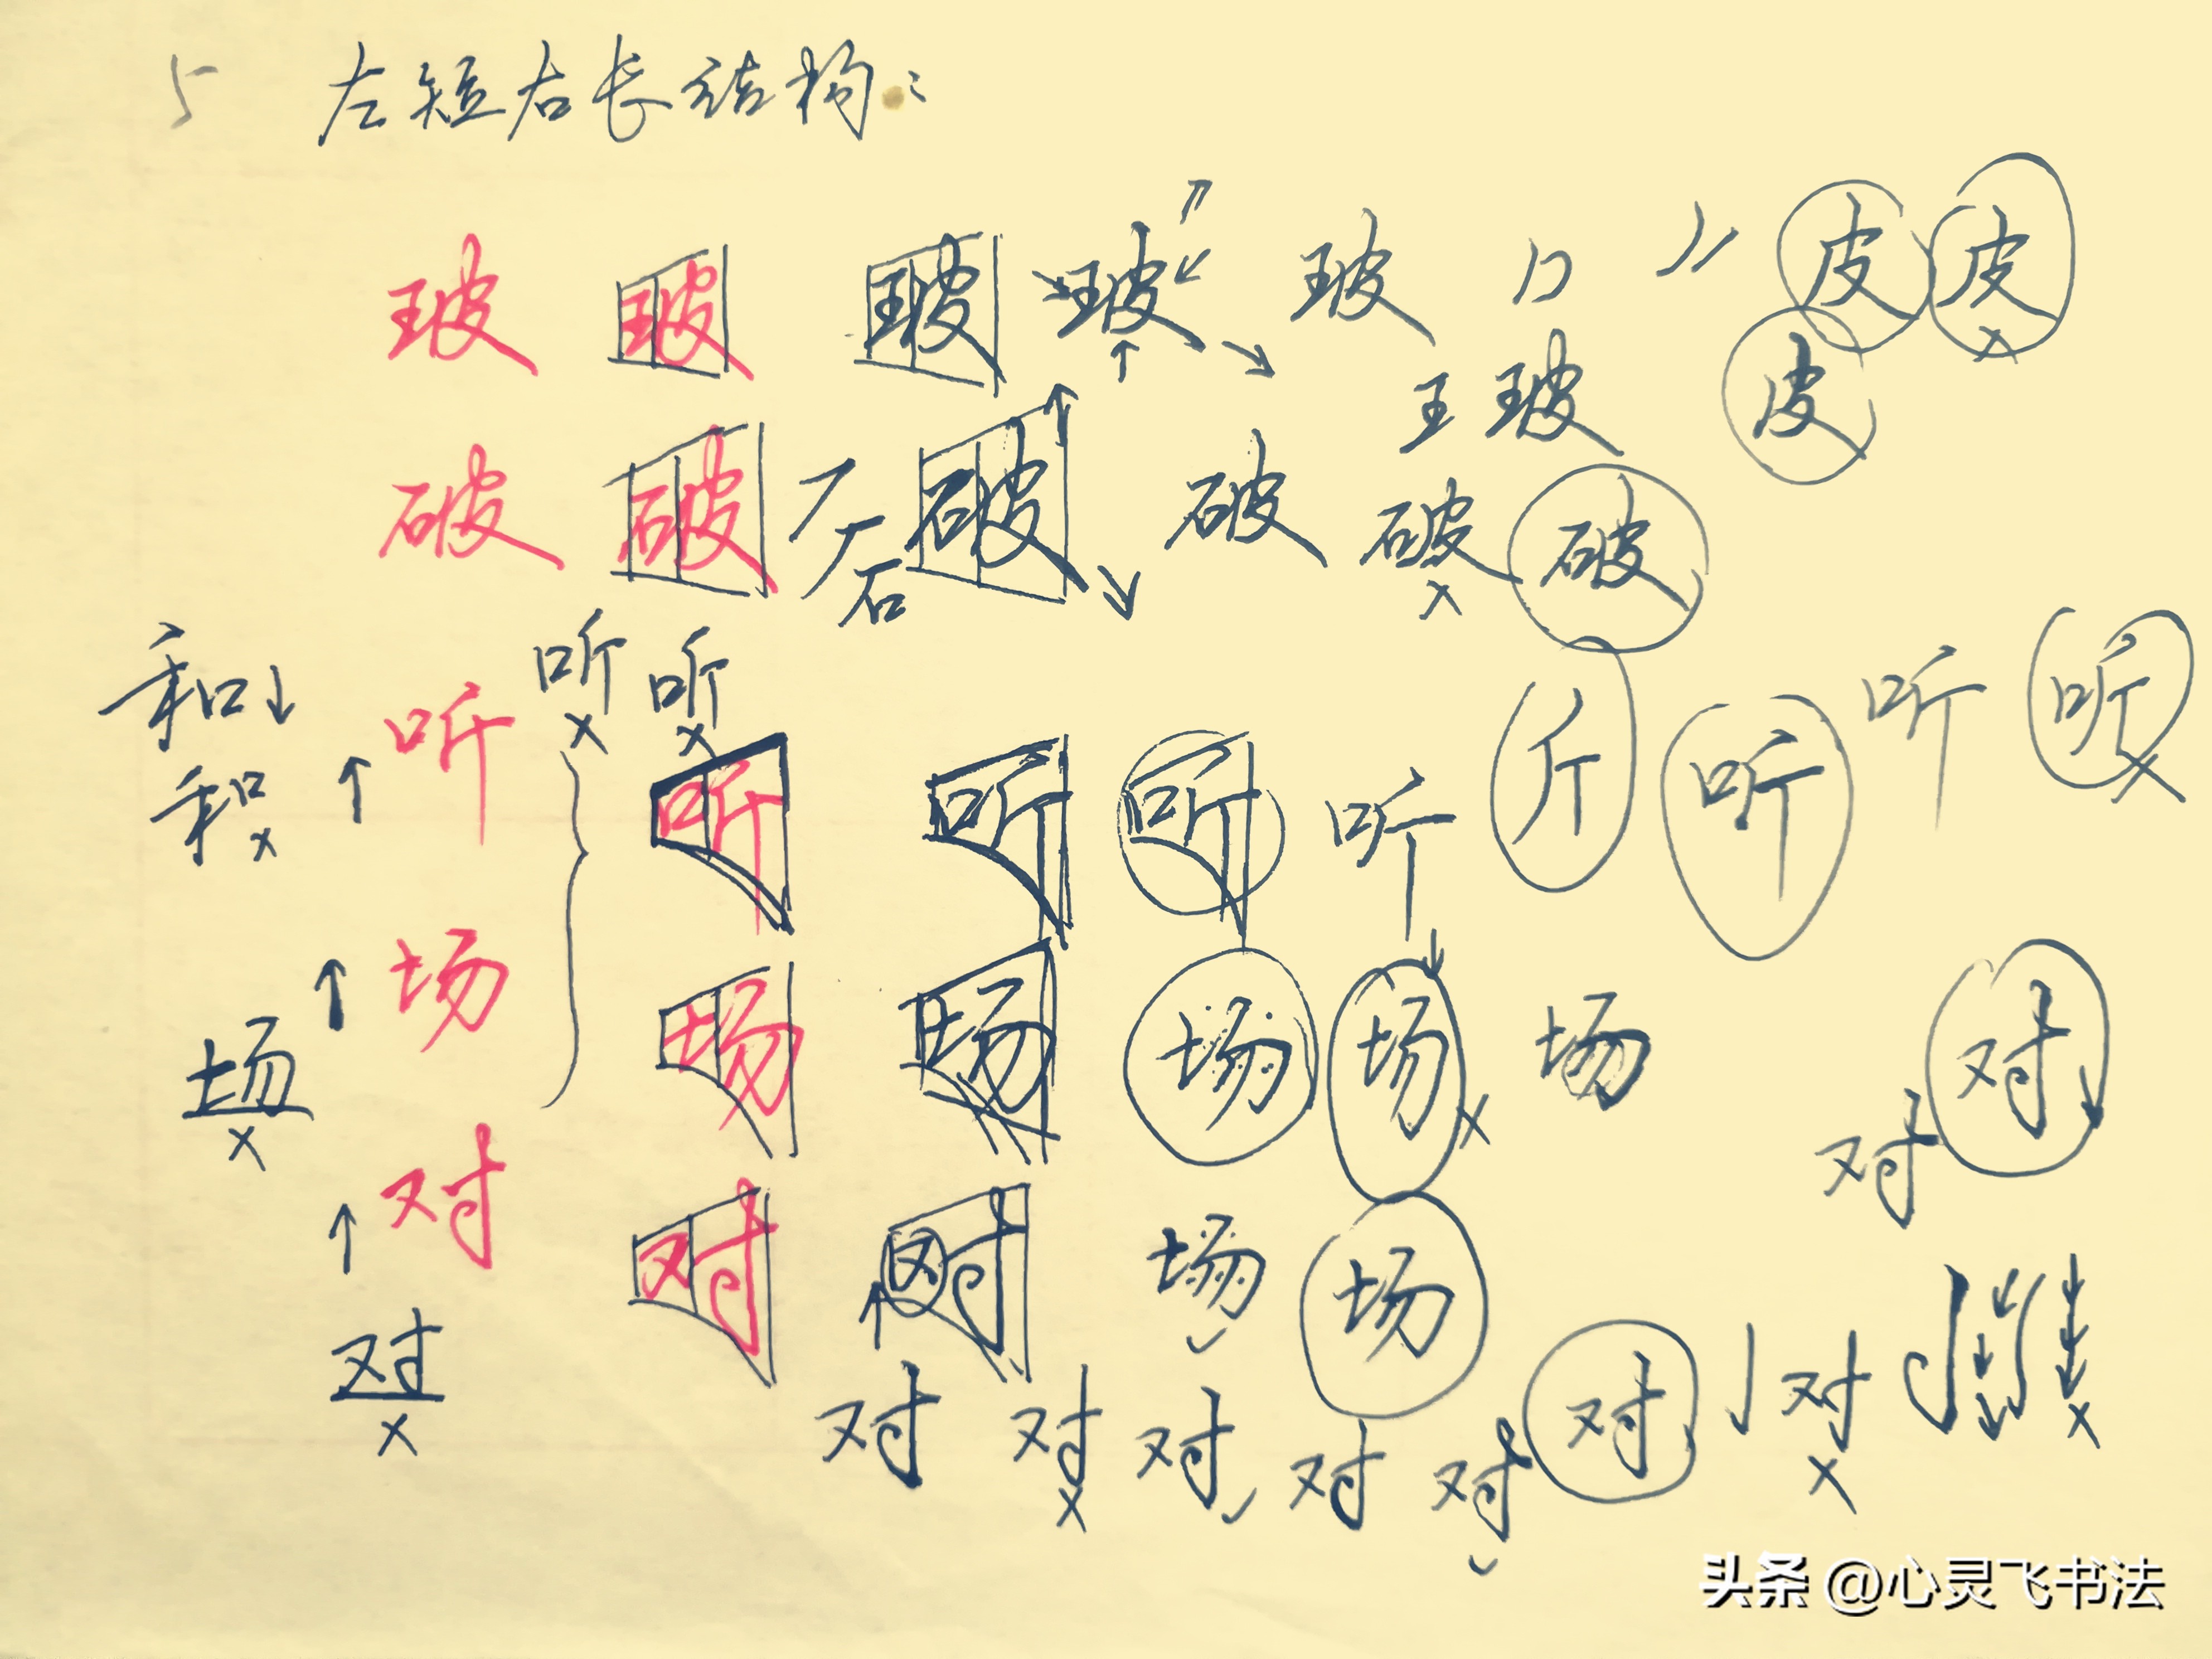 5 左短右长结构:
玻 玻 玻 玻 玻 皮 皮
王 玻 皮
破 破 石 破 破 破 破
和 听 听 听 斤 听 听 听
和 听 听 听 听
场 场 场 场 场 场 对
场 对
对 对 对 场 场
对 对 对 对 对 对 对 对
头条 @心灵飞书法